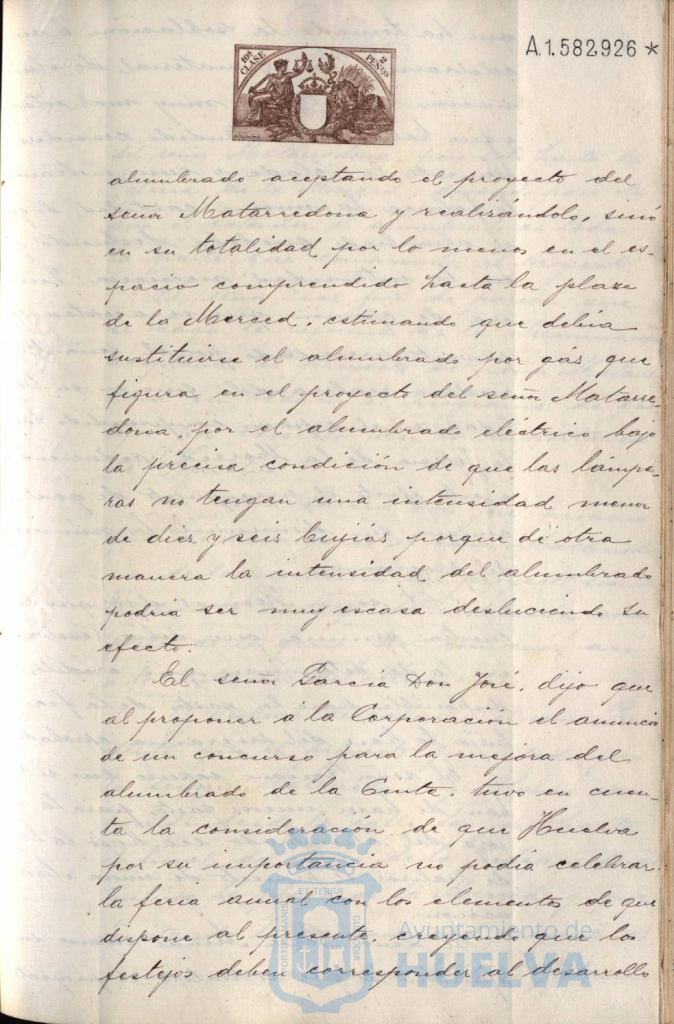 A.1.582.926 *
10ª CLASE
2 PESETAS
alumbrado aceptando el proyecto del
señor Matarredona y realizándolo, sinó
en su totalidad por lo menos en el es-
pacio comprendido hasta la plaza
de la Merced, estimando que debia
sustituirse el alumbrado por gás que
figura en el proyecto del señor Matarre-
dona, por el alumbrado eléctrico bajo
la precisa condición de que las lámpa-
ras no tengan una intensidad menor
de diez y seis bujías porque de otra
manera la intensidad del alumbrado
podria ser muy escasa desluciendo su
efecto.
El señor García Don José, dijo que
al proponer á la Corporación el anuncio
de un concurso para la mejora del
alumbrado de la Cinta, tuvo en cuen-
ta la consideración de que Huelva
por su importancia no podia celebrar
la feria anual con los elementos de que
dispone al presente, creyendo que los
festejos deben corresponder al desarrollo
PORTUS MARIS ET TERRÆ CUSTODIA
Ayuntamiento de
HUELVA